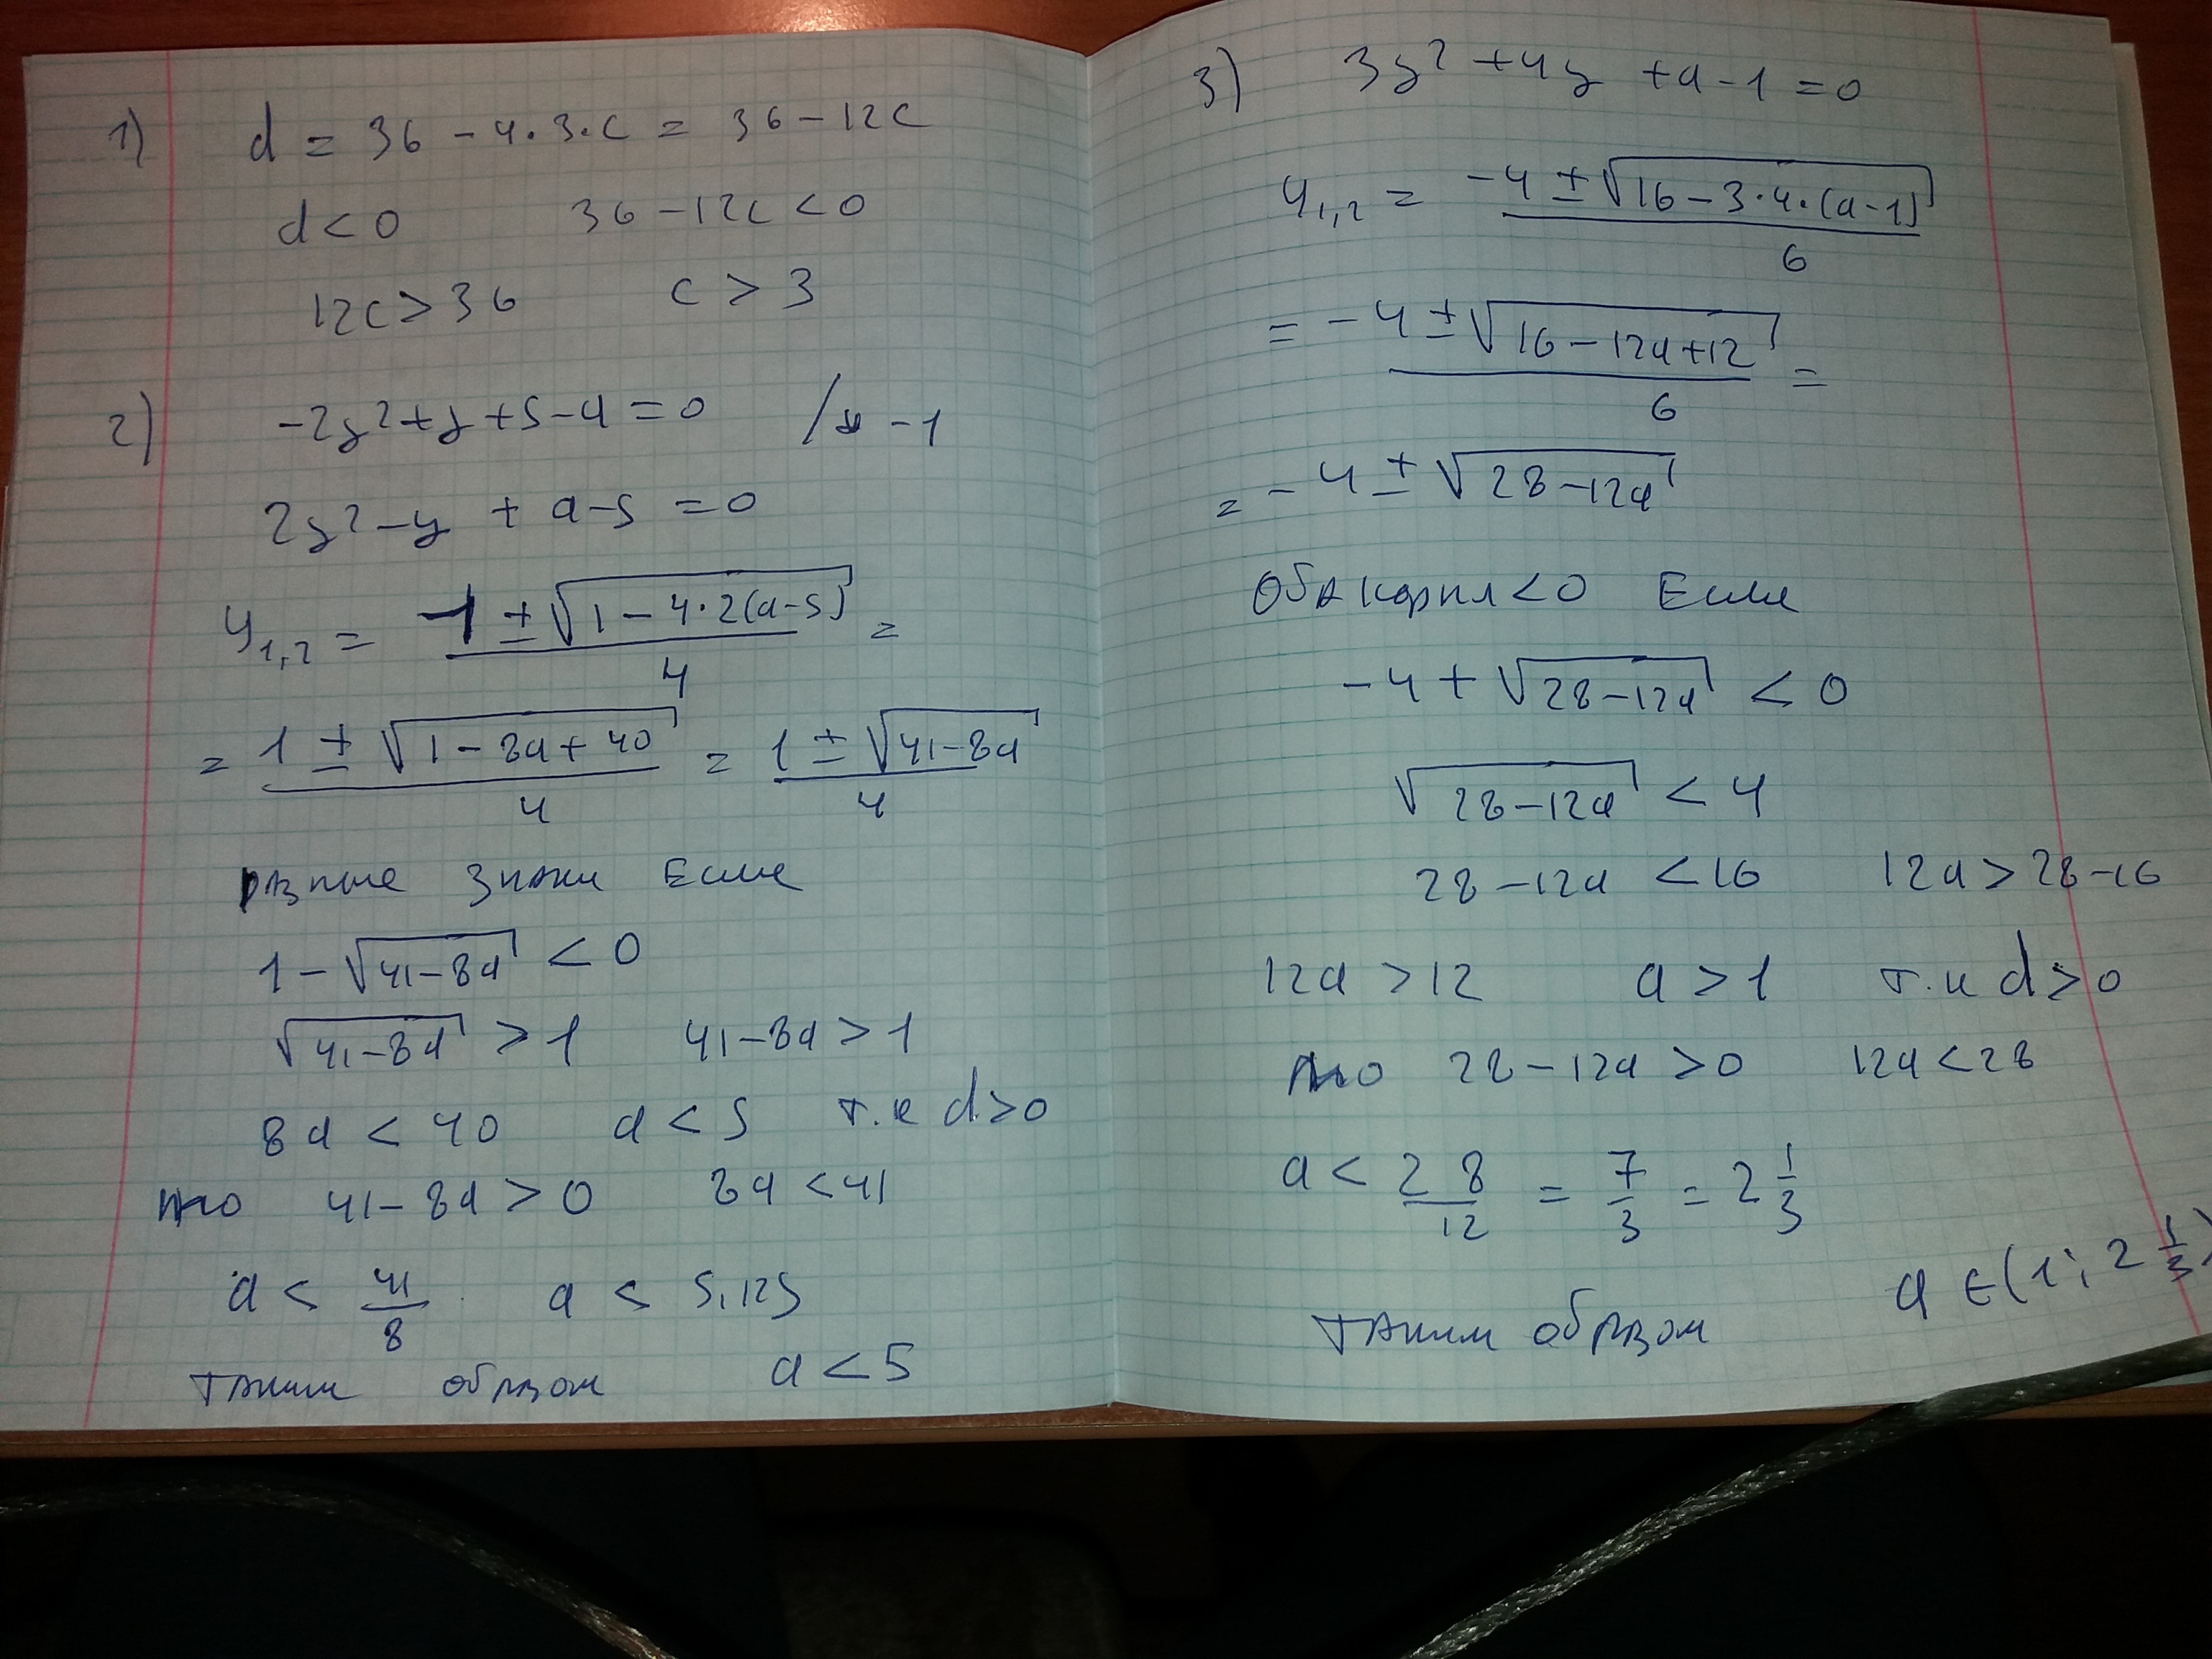 1) d = 36 - 4·3·c = 36 - 12c
d < 0 36 - 12c < 0
12c > 36 c > 3
2) -2y² + y + 5 - a = 0 /* -1
2y² - y + a - 5 = 0
y₁,₂ = 1 ± √(1 - 4·2(a-5)) / 4 =
= 1 ± √(1 - 8a + 40) / 4 = 1 ± √(41 - 8a) / 4
разные знаки Если
1 - √(41 - 8a) < 0
√(41 - 8a) > 1 41 - 8a > 1
8a < 40 a < 5 т.к d > 0
то 41 - 8a > 0 8a < 41
a < 41/8 a < 5,125
таким образом a < 5
3) 3y² + 4y + a - 1 = 0
y₁,₂ = -4 ± √(16 - 3·4·(a-1)) / 6
= -4 ± √(16 - 12a + 12) / 6 =
= -4 ± √(28 - 12a)
Оба корня < 0 Если
-4 + √(28 - 12a) < 0
√(28 - 12a) < 4
28 - 12a < 16 12a > 28 - 16
12a > 12 a > 1 т.к d > 0
то 28 - 12a > 0 12a < 28
a < 28/12 = 7/3 = 2 1/3
таким образом a ∈ (1; 2 1/3)